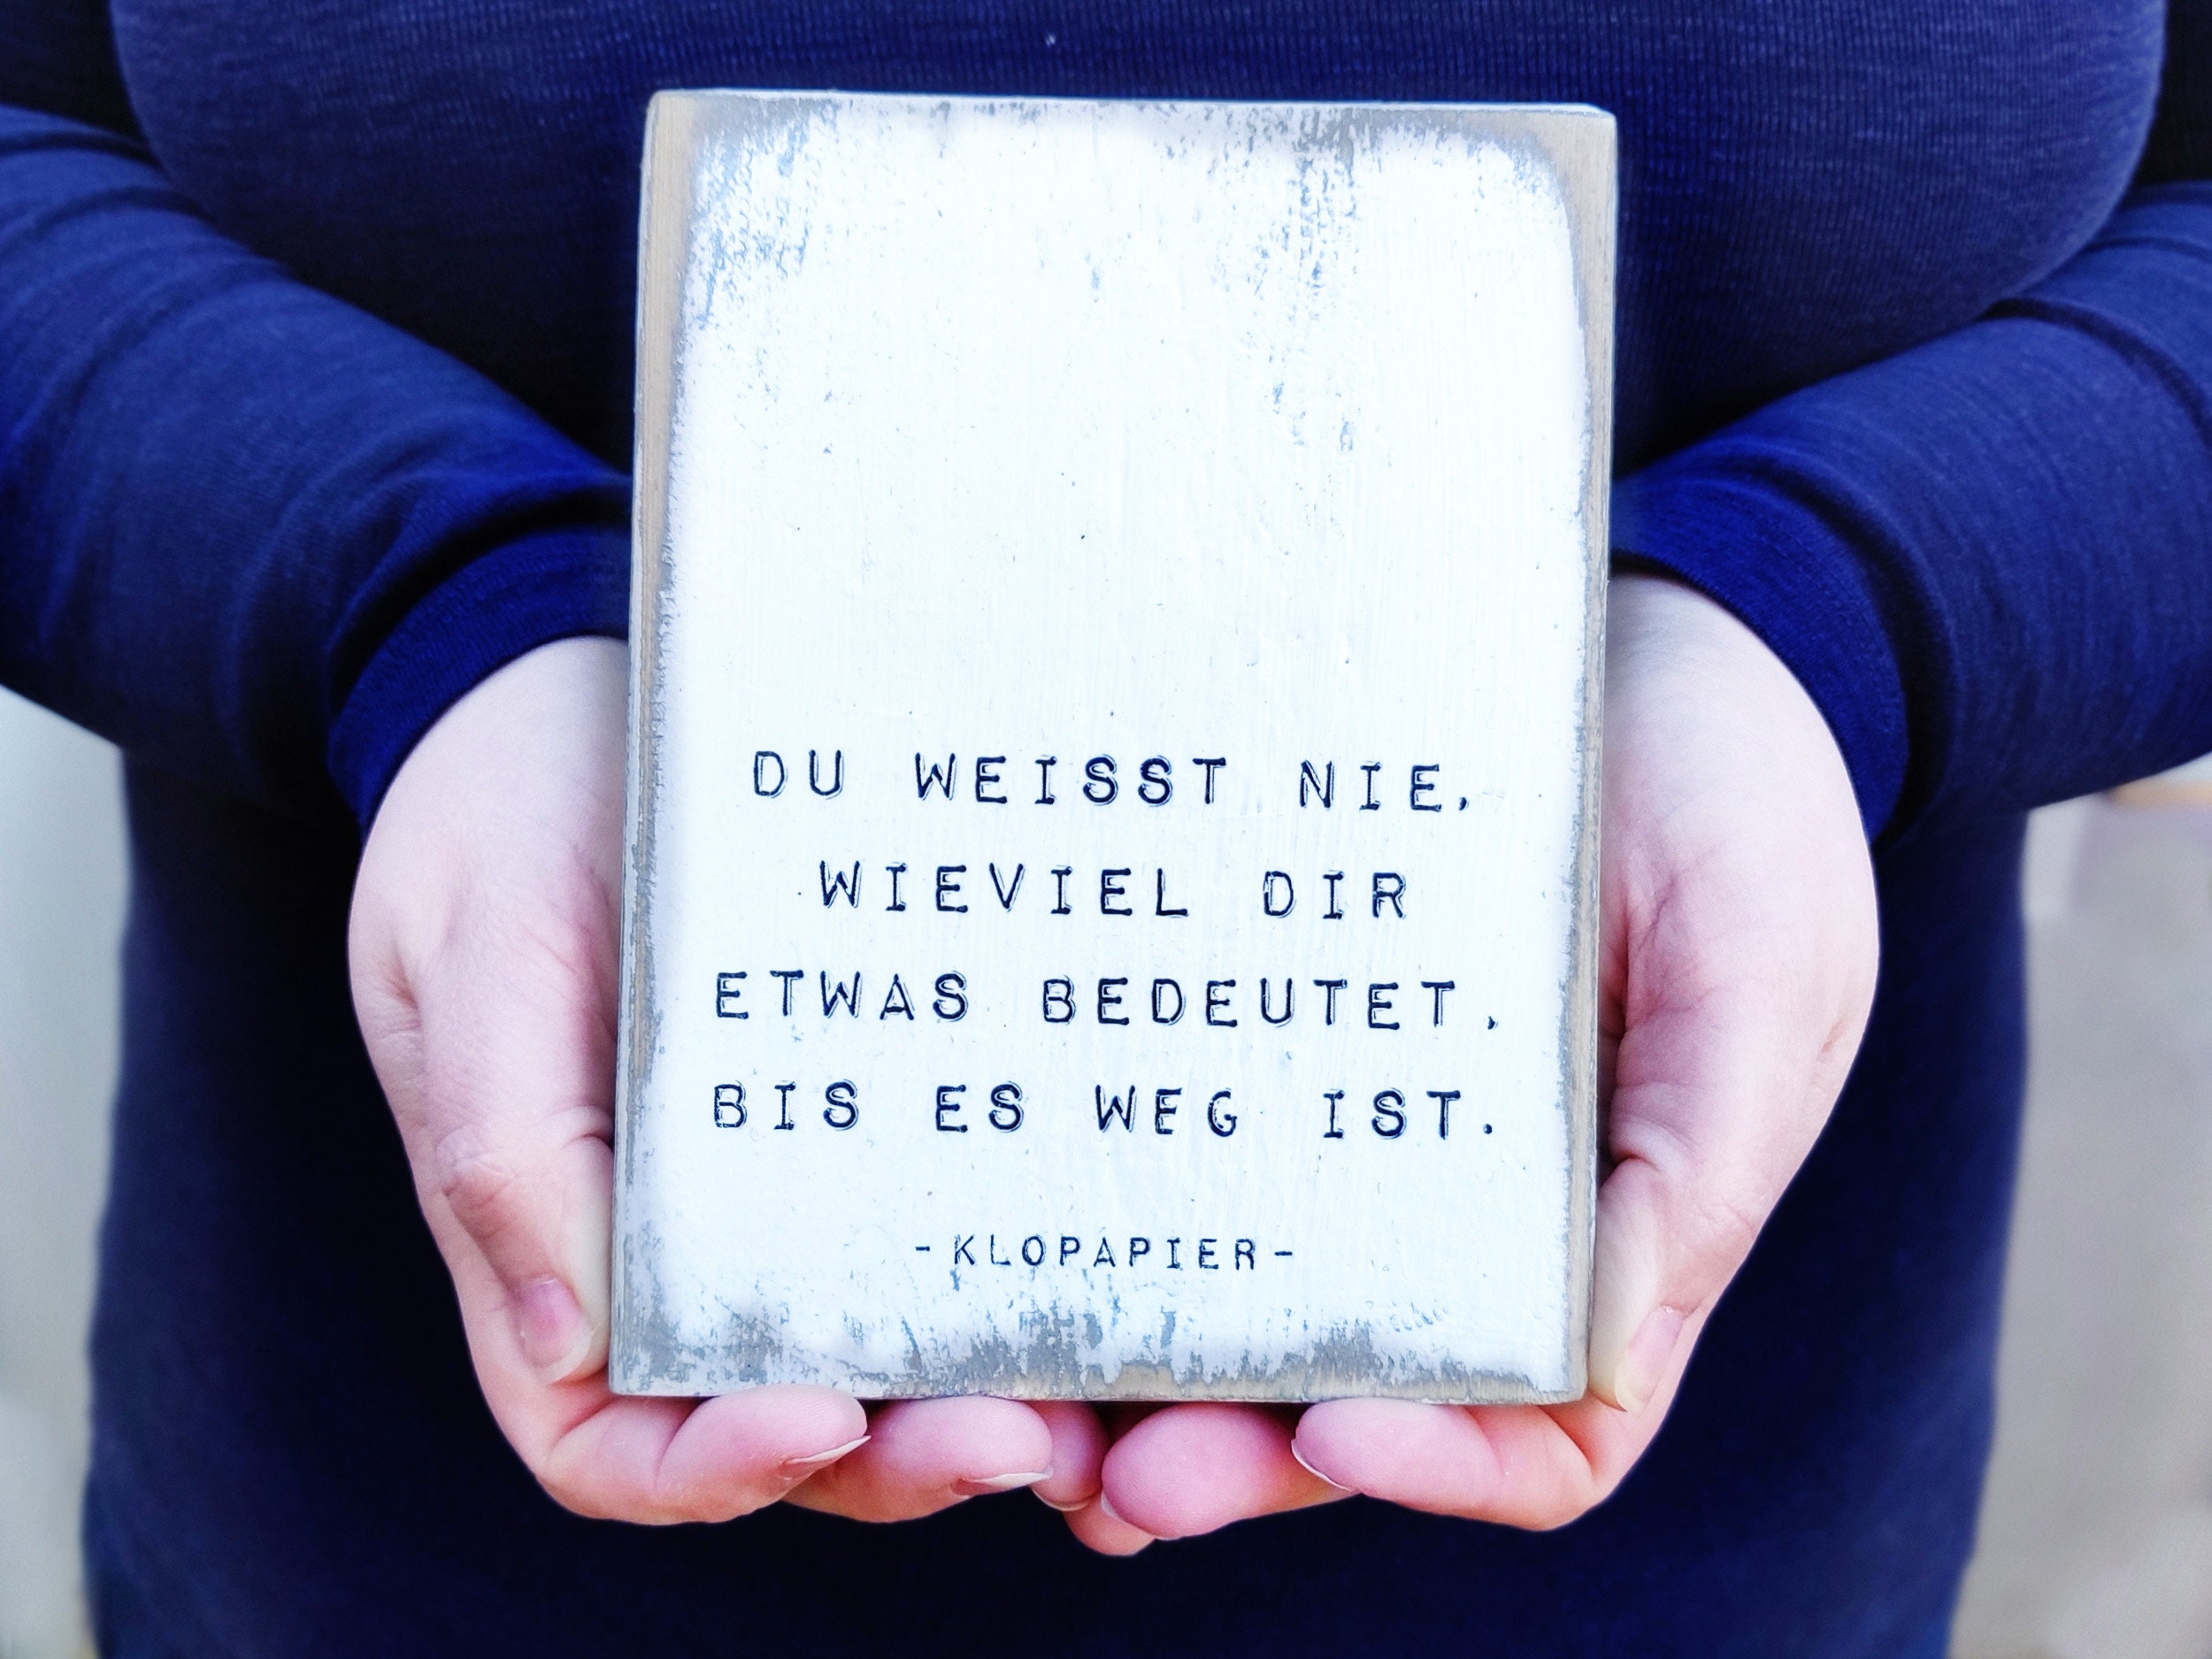 DU WEISST NIE,
WIEVIEL DIR
ETWAS BEDEUTET,
BIS ES WEG IST.
-KLOPAPIER-